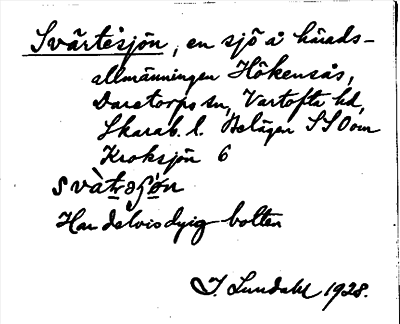 Svärtesjön, en sjö å härads-
allmänningen Hökensås,
Daretorps sn, Vartofta hd,
Skarab. l. Belägen SSO om
Kroksjön 6
Har delvis dyig botten
J. Lundahl 1928.